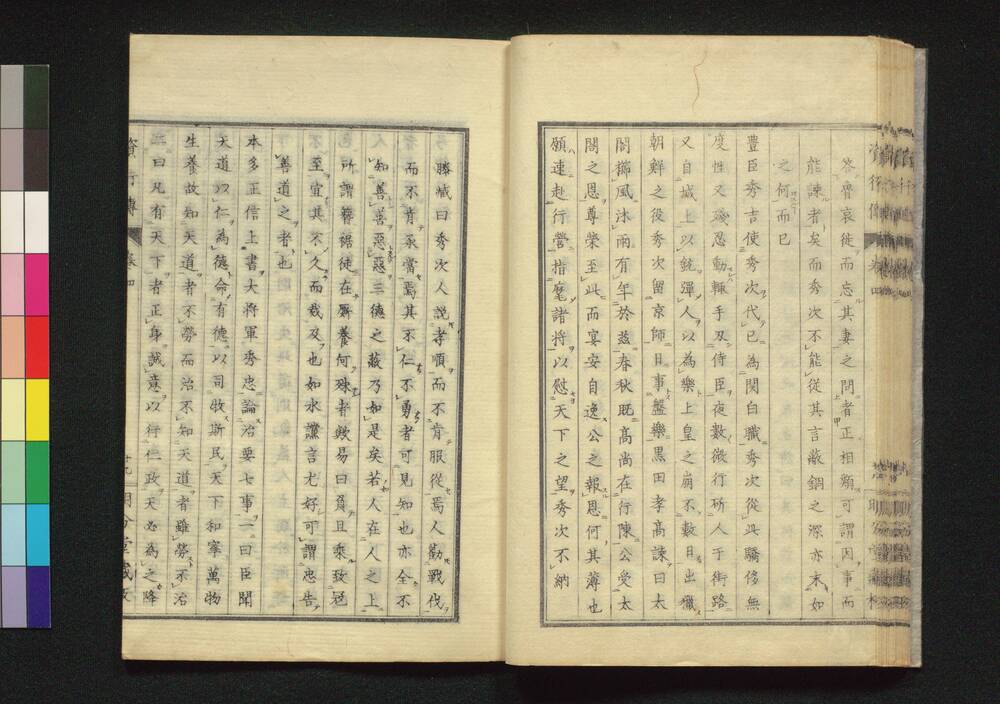 答魯哀徙而忘其妻之問者正相類可謂因事而
能諫者矣而秀次不能從其言蔽錮之深亦末如
之何而已
豊臣秀吉使秀次代已為関白職秀次從此驕侈無
度性又殘忍動輒手刃侍臣夜數微行斫人于街路
又自城上以銃彈人以為樂上皇之崩不數日出獵
朝鮮之役秀次留京師日事盤樂黒田孝高諫曰太
閤櫛風沐雨有年於茲春秋既高尚在行陳公受太
閤之恩尊榮至此而宴安自逸公之報恩何其薄也
願速赴行營指麾諸將以慰天下之望秀次不納
勝臧曰秀次人説孝順而不肯服從焉人勸戰伐
而不肯承當焉其不仁不勇者可見知也亦全不
知善善惡惡三德之蔽乃如是矣若人在人之上
所謂簪裾徒在厮養何殊者歟易曰負且乗致冦
至宜其不久而裁及也如水讜言尤好可謂忠告
善道之者也
本多正信上書大將軍秀忠論治要七事一曰臣聞
天道以仁為德命有德以司牧斯民天下和寧萬物
生養故知天道者不勞而治不知天道者雖勞不治
二曰凡有天下者正身誠意以行仁政天必為之降